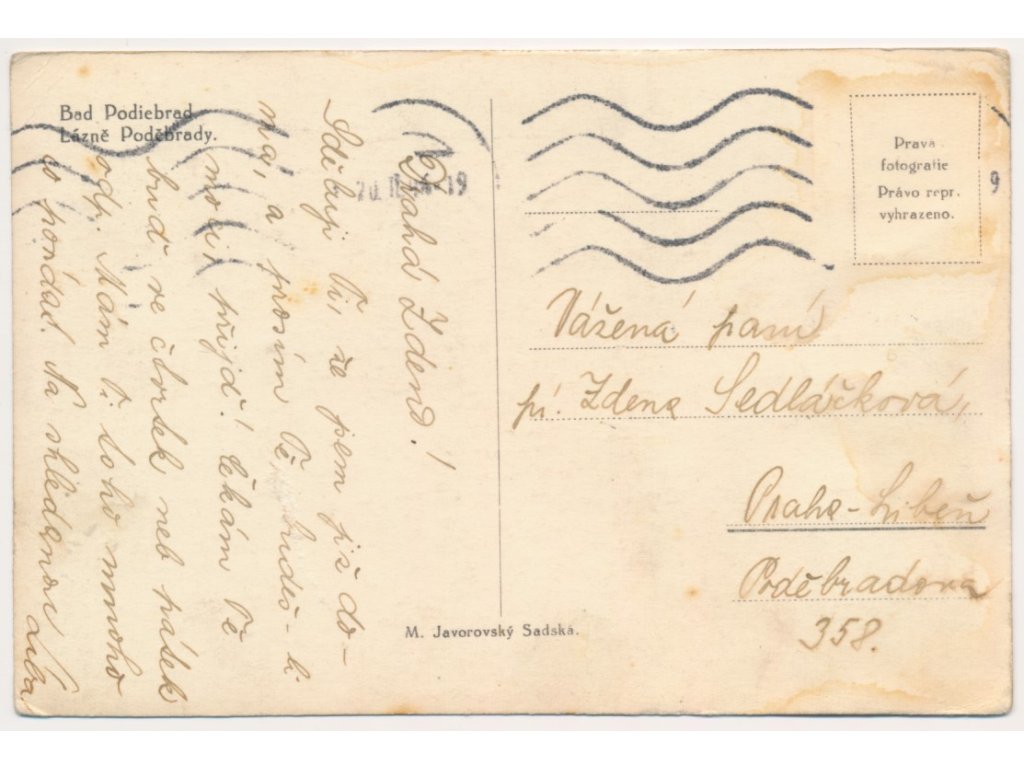 Bad Podiebrad.
Lázně Poděbrady.
Drahá Zdeno!
Sděluji Ti, že jsem již do-
má a prosím Tě, budeš-li
moci, přijď! Čekám Tě
buď ve čtvrtek neb pátek
odp. Mám Ti toho mnoho
co povídat. Na shledanou Liba.
19
9
Prava
fotografie
Právo repr.
vyhrazeno.
Vážená paní
pí. Zdena Sedláčková,
Praha-Libeň
Poděbradova
358.
M. Javorovský Sadská.